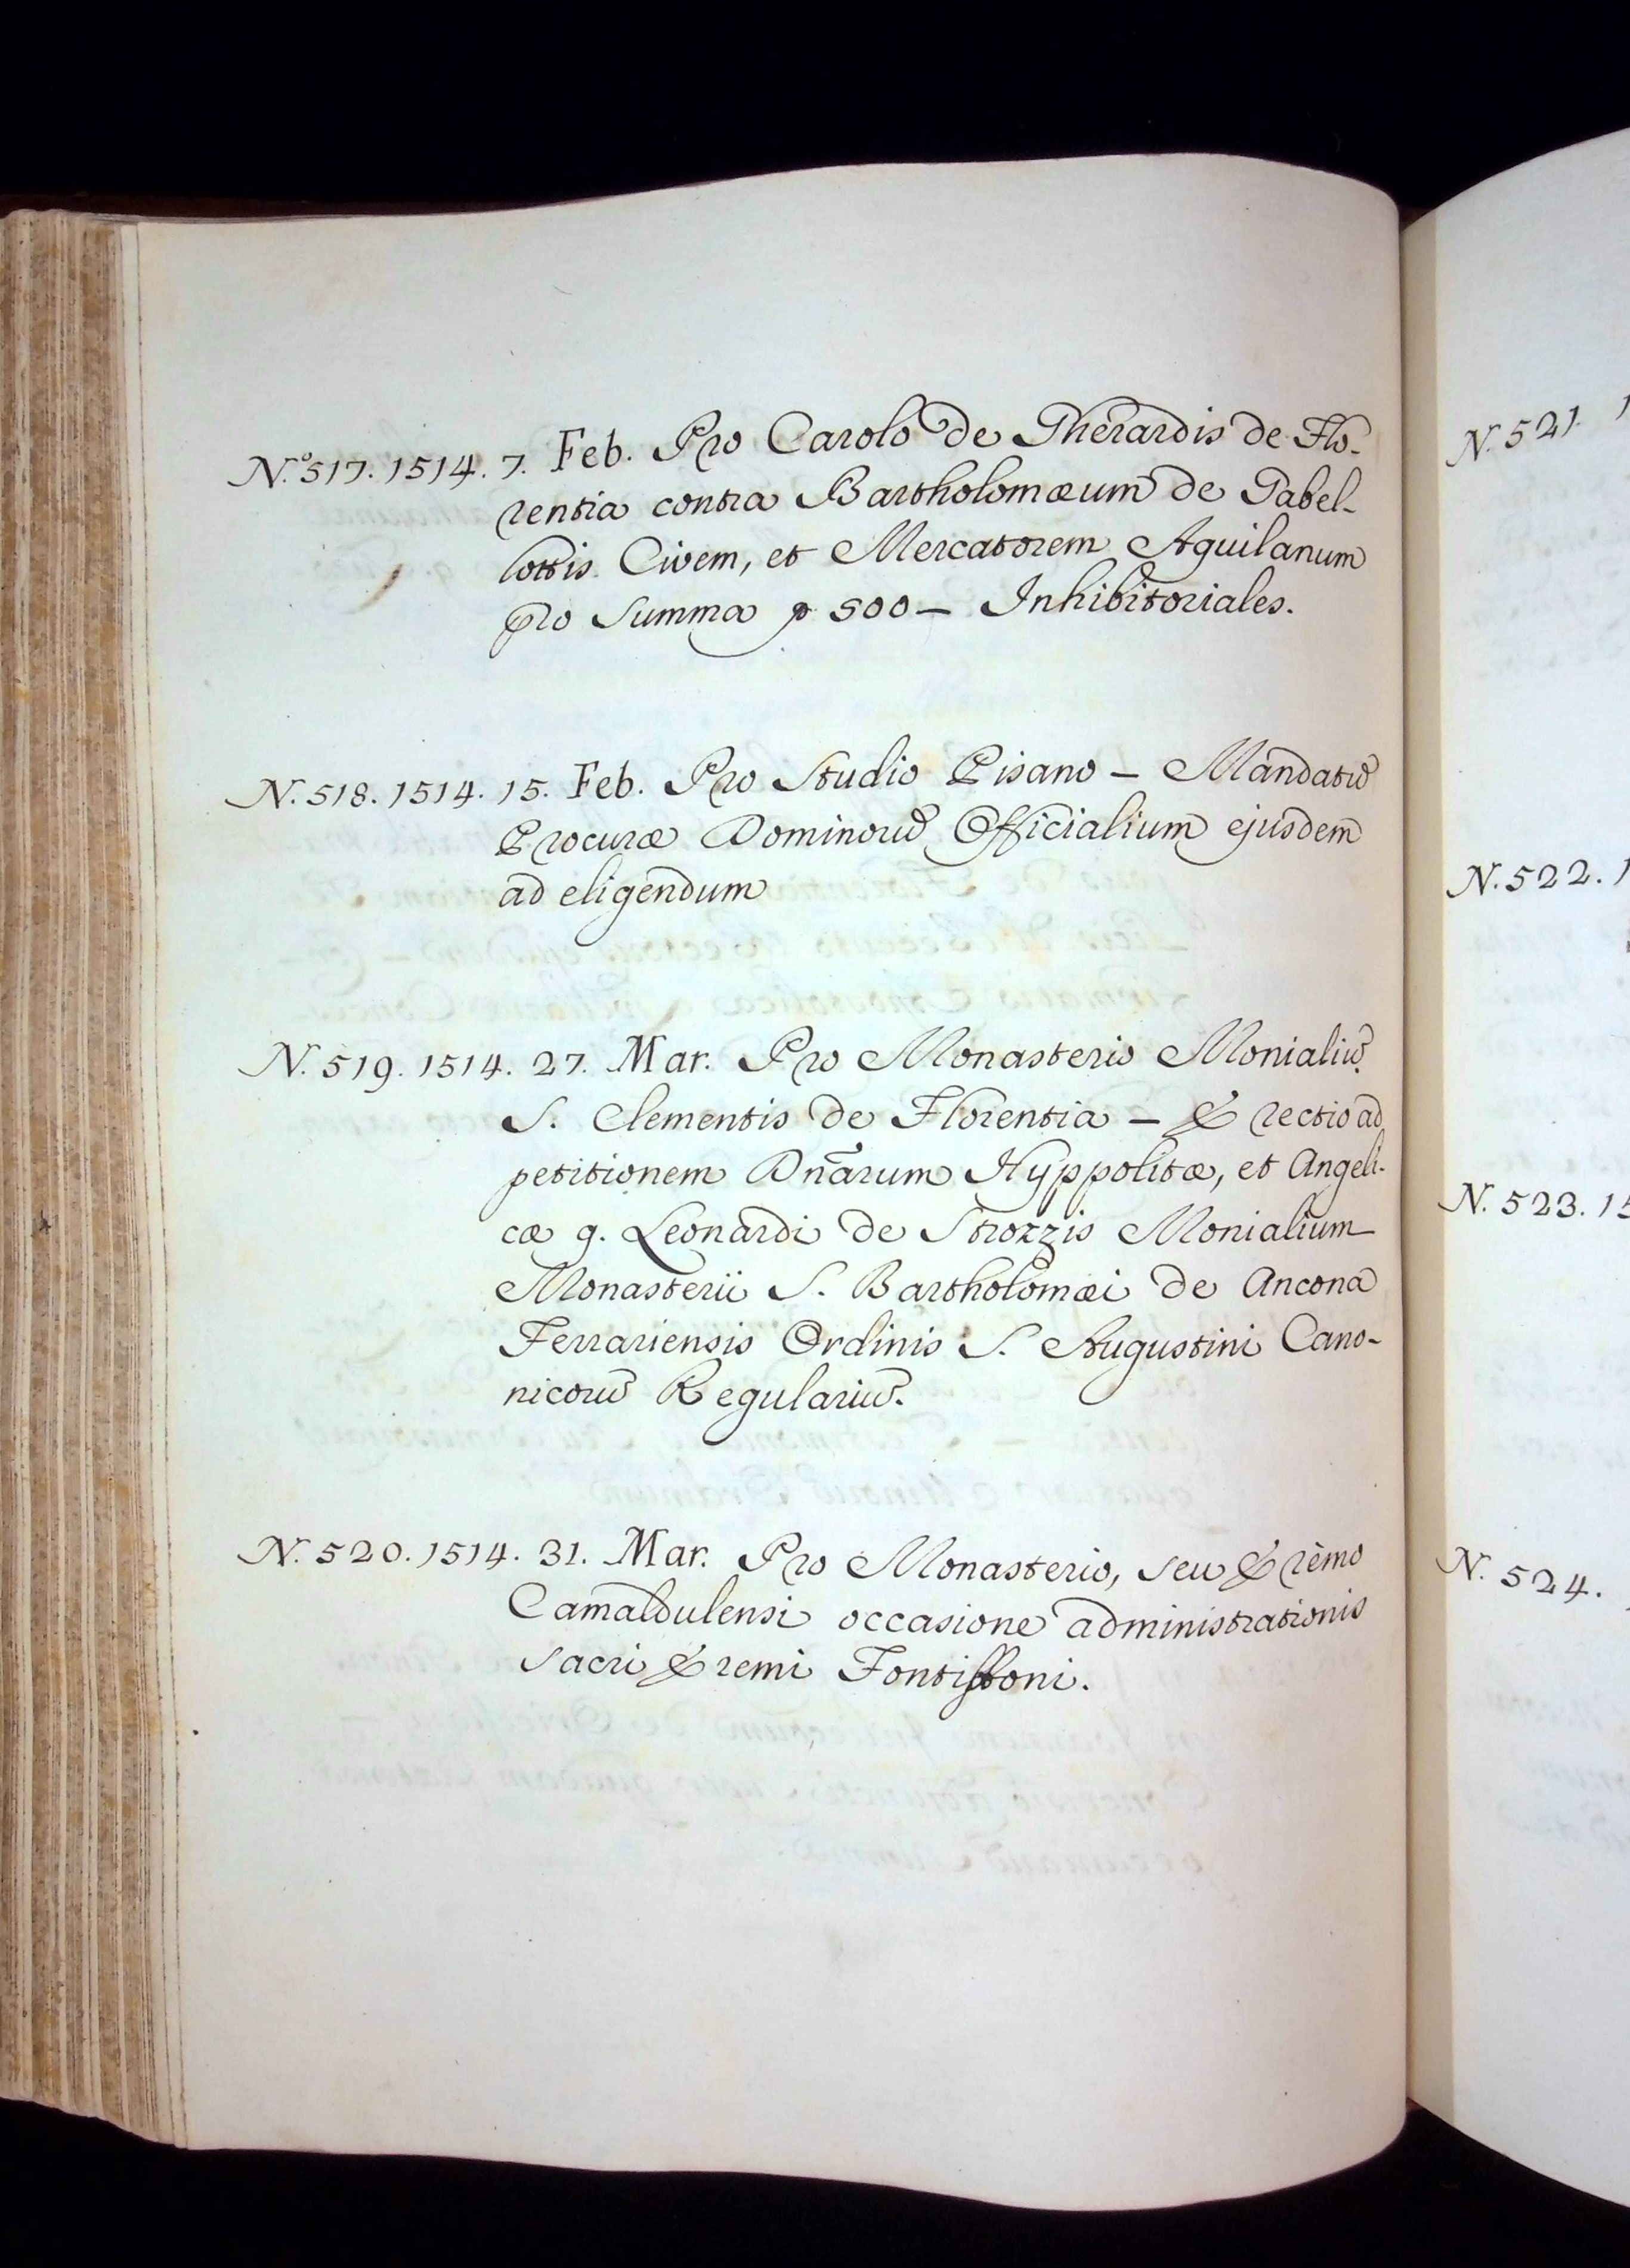 N.º 517. 1514. 7. Feb. Pro Carolo de Gherardis de Flo-
rentia contra Bartholomæum de Gabel-
lottis Civem, et Mercatorem Aquilanum
pro Summa 500 – Inhibitoriales.
N. 518. 1514. 15. Feb. Pro Studio Pisano – Mandatu᷉
Procuræ Dominoru᷉ Officialium ejusdem
ad eligendum
N. 519. 1514. 27. Mar. Pro Monasterio Monialiu᷉
S. Clementis de Florentia – Erectio ad
petitionem Dnārum Hyppolitæ, et Angeli-
cæ q. Leonardi de Strozzis Monialium
Monasterii S. Bartholomæi de Ancona
Ferrariensis Ordinis S. Augustini Cano-
nicoru᷉ Regulariu᷉.
N. 520. 1514. 31. Mar. Pro Monasterio, seu Erèmo
Camaldulensi occasione administrationis
Sacri Eremi
N. 521.
N. 522.
N. 523. 15
N. 524.